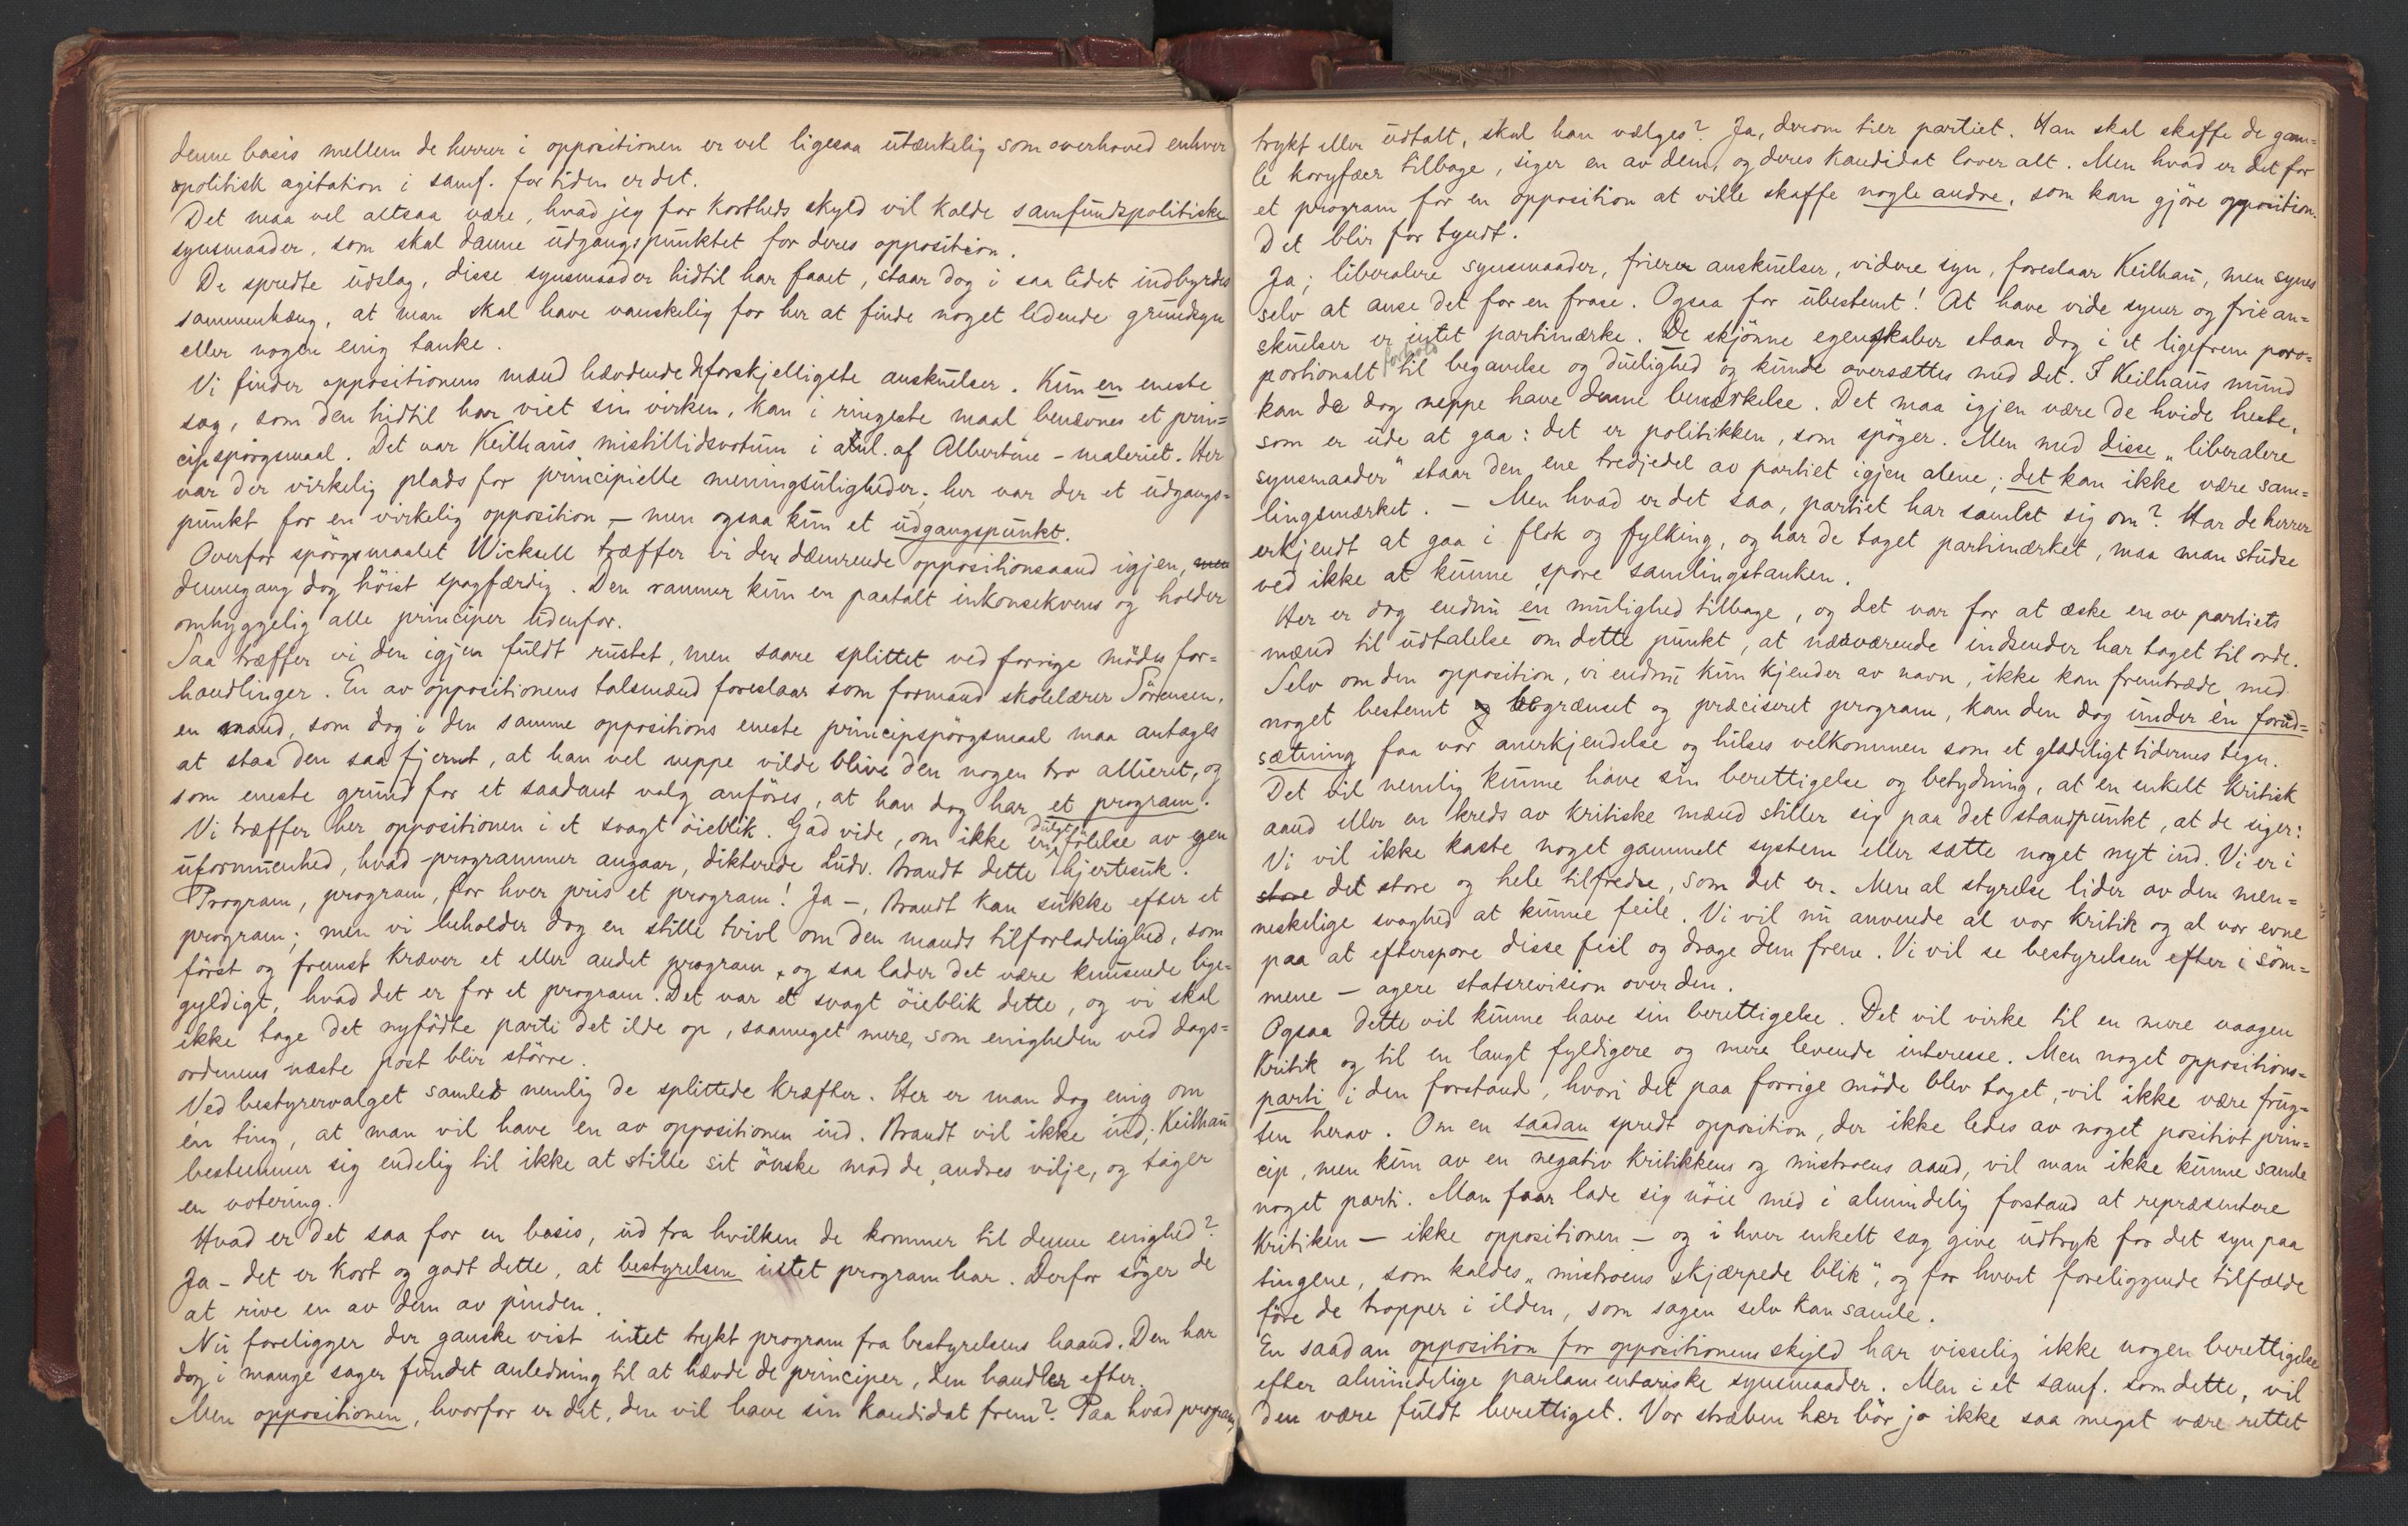 denne basis mellem de herrer i oppositionen er vel ligesaa utænkelig som overhoved enhver
politisk agitation i samf. for tiden er det.
Det maa vel altsaa være, hvad jeg for kortheds skyld vil kalde samfundspolitiske
synsmaader, som skal danne udgangspunktet for deres opposition.
De spredte udslag, disse synsmaader hidtil har faaet, staar dog i saa lidet indbyrdes
sammenhæng, at man skal have vanskelig for her at finde noget ledende grundsyn
eller nogen enig tanke.
Vi finder oppositionens mænd hævdende de forskjelligste anskuelser. Kun en eneste
sag, som den hidtil har viet sin virken, kan i ringeste maal benævnes et prin=
cipspörgsmaal. Det var Keilhaus mistillidsvotum i anl. af Albertine-maleriet. Her
var der virkelig plads for principielle meningsuligheder; her var der et udgangs=
punkt for en virkelig opposition, – men ogsaa kun et udgangspunkt.
Overfor spörgsmaalet Wicksell træffer vi den dæmrende oppositionsaand igjen, men
dennegang dog höist spagfærdig. Den rammer kun en paatalt inkonsekvens og holder
omhyggelig alle principer udenfor.
Saa træffer vi den igjen fuldt rustet, men saare splittet ved forrige mödes for=
handlinger. En av oppositionens talsmænd foreslaar som formand skolelærer Sörensen,
en mand, som dog i den samme oppositions eneste principspörgsmaal maa antages
at staa den saa fjernt, at han vel neppe vilde blive den nogen tro allieret, og
som eneste grund for et saadant valg anföres, at han dog har et program.
Vi træffer her oppositionen i et svagt öieblik. Gad vide, om ikke en dulgt fölelse av egen
uformuenhed, hvad programmer angaar, dikterede Ludv. Brandt dette hjertesuk.
Program, program, for hver pris et program! Ja –, Brandt kan sukke efter et
program; men vi beholder dog en stille tvivl om den mands tilforladelighed, som
först og fremst kræver et eller andet program, og saa lader det være knusende lige=
gyldigt, hvad det er for et program. Det var et svagt öieblik dette, og vi skal
ikke tage det nyfödte parti det ilde op, saameget mere, som enigheden ved dags=
ordenens næste post blir större.
Ved bestyrervalget samled nemlig de splittede kræfter. Her er man dog enig om
én ting, at man vil have en av oppositionen ind. Brandt vil ikke ind; Keilhau
bestemmer sig endelig til ikke at stille sit önske mod de andres vilje, og tager
en votering.
Hvad er det saa for en basis, ud fra hvilken de kommer til denne enighed?
Ja – det er kort og godt dette, at bestyrelsen intet program har. Derfor söger de
at rive en av dem av pinden.
Nu foreligger der ganske vist intet trykt program fra bestyrelsens haand. Den har
dog i mange sager fundet anledning til at hævde de principer, den handler efter.
Men oppositionen, hvorfor er det, den vil have sin kandidat frem? Paa hvad program,
trykt eller udtalt, skal han vælges? Ja, derom tier partiet. Han skal skaffe de gam=
le koryfæer tilbage, siger en av dem, og deres kandidat lover alt. Men hvad er det for
et program for en opposition at ville skaffe nogle andre, som kan gjöre opposition.
Det blir for tyndt.
Ja; liberalere synsmaader, friere anskuelser, videre syn, foreslaar Keilhau, men synes
selv at anse det for en frase. Ogsaa for ubestemt! At have vide syner og frie an=
skuelser er intet partimærke. De skjönne egenskaber staar dog i et ligefrem pro=
portionalt forhold til begavelse og duelighed og kunde oversættes med det. I Keilhaus mund
kan de dog neppe have denne bemærkelse. Det maa igjen være de hvide heste,
som er ude at gaa: det er politikken, som spöger. Men med disse „liberalere
synsmaader" staar den ene tredjedel av partiet igjen alene; det kan ikke være sam=
lingsmærket. – Men hvad er det saa, partiet har samlet sig om? Har de herrer
erkjendt at gaa i flok og fylking, og har de taget partimærket, maa man studse
ved ikke at kunne spore samlingstanken.
Her er dog endnu en mulighed tilbage, og det var for at æske en av partiets
mænd til udtalelse om dette punkt, at nærværende indsender har taget til orde.
Selv om den opposition, vi endnu kun kjender av navn, ikke kan fremtræde med
noget bestemt og begrænset og præciseret program, kan den dog under én forud=
sætning faa vor anerkjendelse og hilses velkommen som et glædeligt tidernes tegn.
Det vil nemlig kunne have sin berettigelse og betydning, at en enkelt kritisk
aand eller en kreds av kritiske mænd stiller sig paa det standpunkt, at de siger:
Vi vil ikke kaste noget gammelt system eller sætte noget nyt ind. Vi er i
store det store og hele tilfredse, som det er. Men al styrelse lider av den men=
neskelige svaghed at kunne feile. Vi vil nu anvende al vor kritik og al vor evne
paa at efterspore disse feil og drage dem frem. Vi vil se bestyrelsen efter i söm=
mene – agere statsrevision over den.
Ogsaa dette vil kunne have sin berettigelse. Det vil virke til en mere vaagen
kritik og til en langt fyldigere og mere levende interesse. Men noget oppositions=
parti i den forstand, hvori det paa forrige möde blev taget, vil ikke være frug=
ten herav. Om en saadan spredt opposition, der ikke ledes av noget positivt prin=
cip, men kun av en negativ kritikkens og mistroens aand, vil man ikke kunne samle
noget parti. Man faar lade sig nöie med i almindelig forstand at repræsentere
kritiken – ikke oppositionen – og i hver enkelt sag give udtryk for det syn paa
tingene, som kaldes „mistroens skjærpede blik", og for hvert foreliggende tilfælde
före de tropper i ilden, som sagen selv kan samle.
En saadan opposition for oppositionens skyld har visselig ikke nogen berettigelse
efter almindelige parlamentariske synsmaader. Men i et samf. som dette, vil
den være fuldt berettiget. Vor stræben her bör jo ikke saa meget være rettet